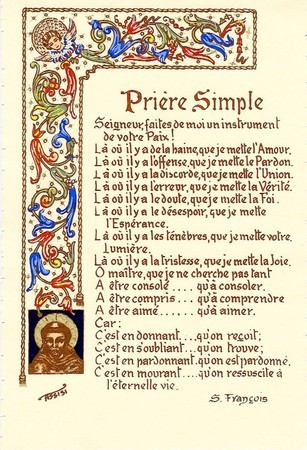 Prière Simple
Seigneur, faites de moi un instrument
de votre Paix!
Là où il y a de la haine, que je mette l'Amour.
Là où il y a l'offense, que je mette le Pardon.
Là où il y a la discorde, que je mette l'Union.
Là où il y a l'erreur, que je mette la Vérité.
Là où il y a le doute, que je mette la Foi.
Là où il y a le désespoir, que je mette
l'Espérance.
Là où il y a les ténèbres, que je mette votre
Lumière.
Là où il y a la tristesse, que je mette la Joie.
O maître, que je ne cherche pas tant
A être consolé.... qu'à consoler.
A être compris... qu'à comprendre
A être aimé...... qu'à aimer.
Car:
C'est en donnant....qu'on reçoit;
C'est en s'oubliant...qu'on trouve;
C'est en pardonnant..qu'on est pardonné,
C'est en mourant....qu'on ressuscite à
l'éternelle vie.
ASSISI
S. François